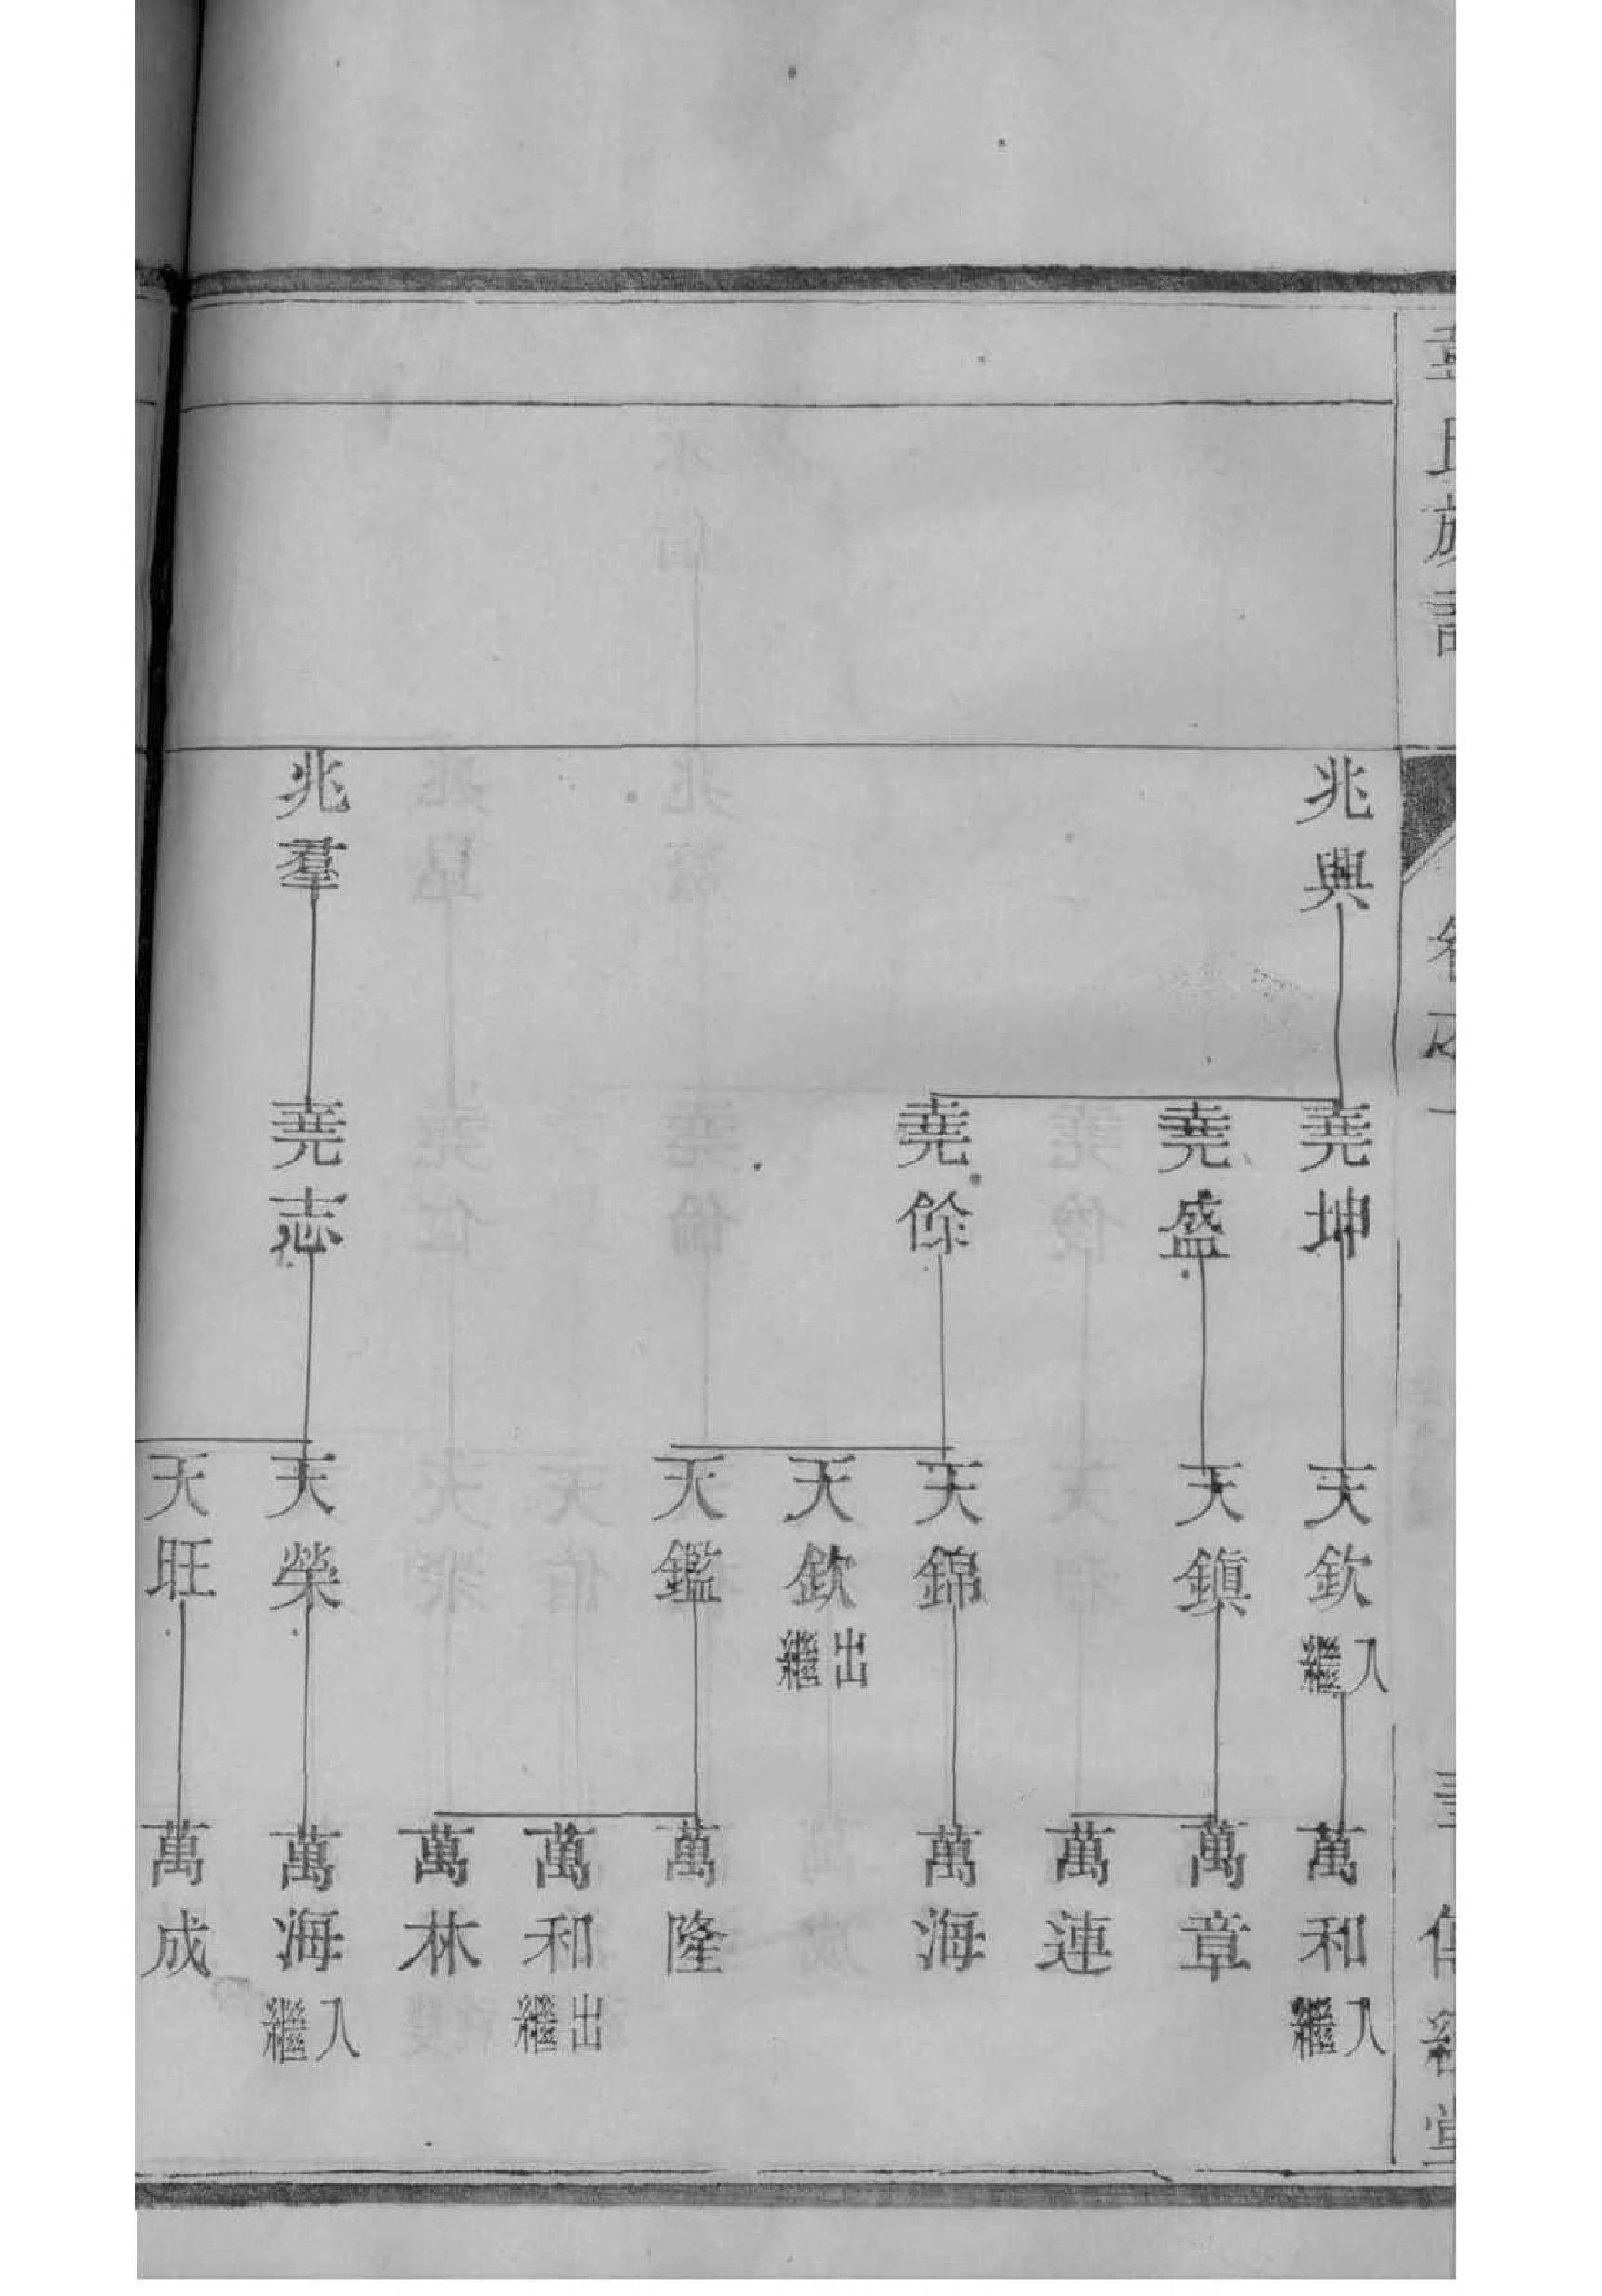 氏族
兆興
兆羣
堯坤
堯盛
堯餘
堯志
天欽入繼
天鎭
天錦
天欽出繼
天鑑
天榮
天旺
萬和入繼
萬章
萬連
萬海
萬隆
萬和出繼
萬林
萬海入繼
萬成